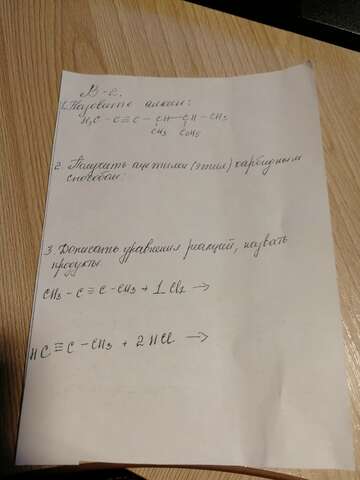 В-2.
1. Назовите алкин:
H₃C - C≡C - CH - CH - CH₃
CH₃ C₂H₅
2. Получить ацетилен (этин) карбидным
способом:
3. Дописать уравнения реакций, назвать
продукты
CH₃ - C ≡ C - CH₃ + 1 Cl₂ →
HC ≡ C - CH₃ + 2 HCl →